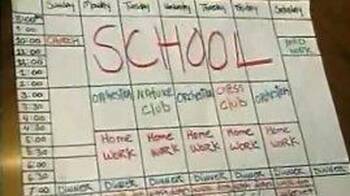 Sunday Monday Tuesday Wednesday Thursday Friday Saturday
9:00
10:00 CHURCH
11:00
SCHOOL
YARD WORK
3:00 ORCHESTRA NATURE CLUB ORCHESTRA CHESS CLUB ORCHESTRA
3:30
4:30
5:00 Home WORK Home WORK Home WORK Home WORK Home WORK
5:30
6:00
6:30 DINNER DINNER DINNER DINNER DINNER DINNER
7:00 DINNER